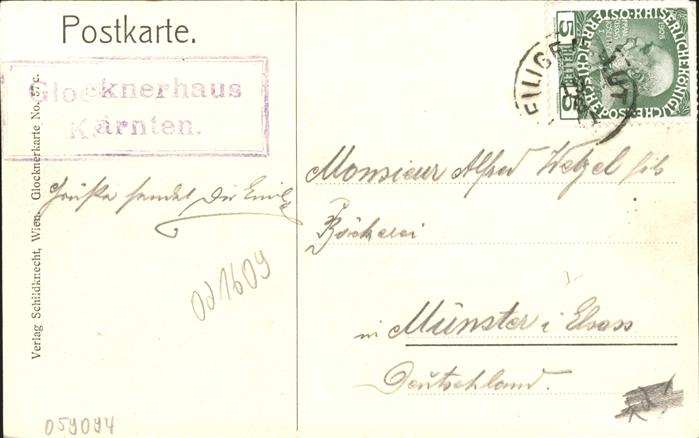 Postkarte.
Glocknerhaus
Kärnten.
Grüße sendet Dir Emil
Verlag Schildknecht, Wien. Glocknerkarte No. 37c.
001609
059094
5 HELLER 5
1908
HEILIGENBLUT
Monsieur Alfred Wetzel fils
Bäckerei
in Münster i Elsass
Deutschland.